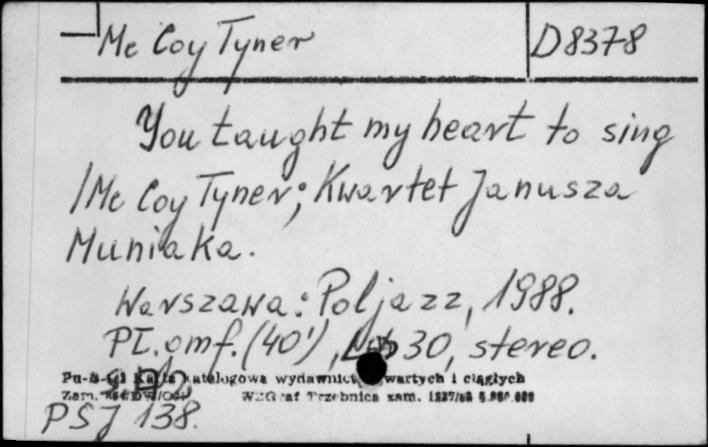 Mc Coy Tyner
D8378
You taught my heart to sing
/Mc Coy Tyner; Kwartet Janusza
Muniaka.
Warszawa: Poljazz, 1988.
Pł. omf. (40'), 30, stereo.
Karta katalogowa wydawnictw zwartych i ciągłych
Zam. WZGraf Trzebnica zam.
PSJ 138.